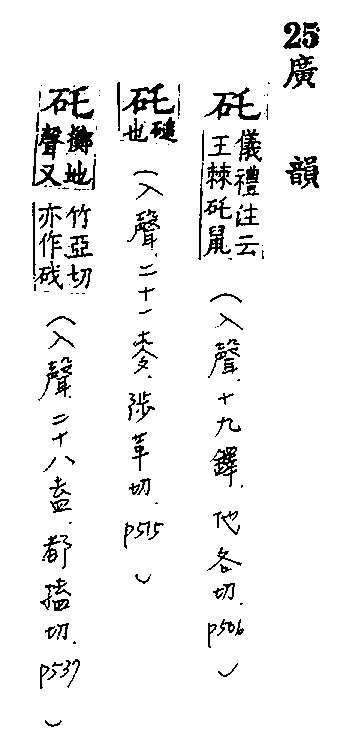 25廣韻
矺儀禮注云王棘矺鼠(入聲.十九鐸.他各切.p506)
矺磓也(入聲.二十一麥.陟革切.p515)
矺擲地聲又竹亞切亦作䂨(入聲.二十八盍.都搕切.p537)